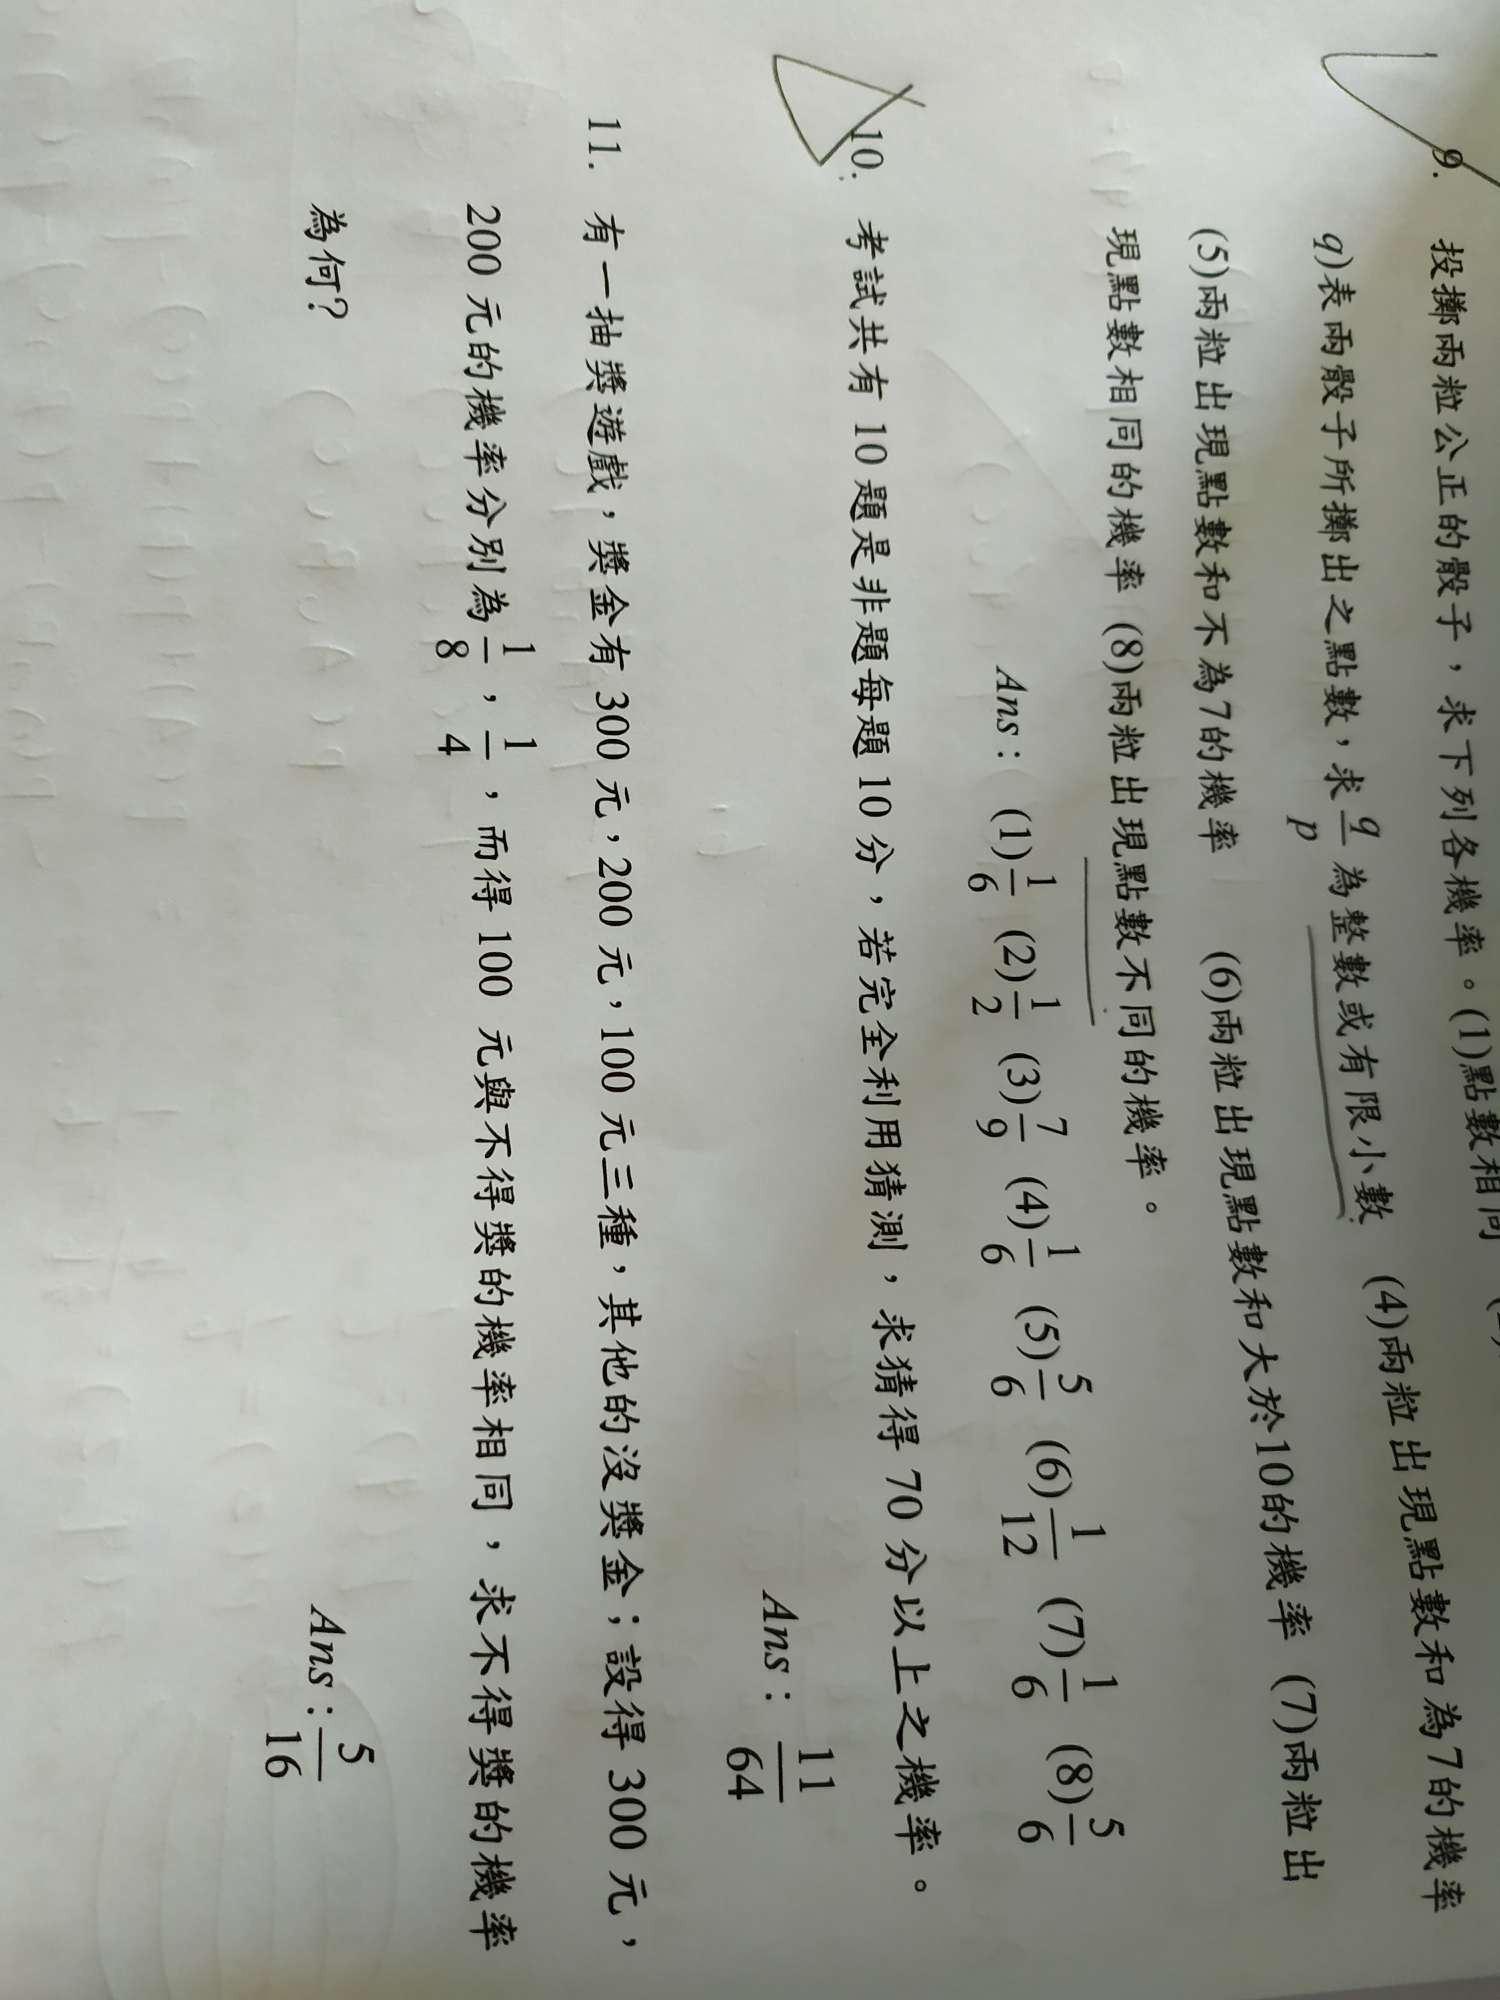 9. 投擲兩粒公正的骰子，求下列各機率。(1)點數相同
q)表兩骰子所擲出之點數，求 q/p 為整數或有限小數 (4)兩粒出現點數和為7的機率
(5)兩粒出現點數和不為7的機率 (6)兩粒出現點數和大於10的機率 (7)兩粒出
現點數相同的機率 (8)兩粒出現點數不同的機率。
Ans： (1)1/6 (2)1/2 (3)7/9 (4)1/6 (5)5/6 (6)1/12 (7)1/6 (8)5/6
10. 考試共有 10 題是非題每題 10 分，若完全利用猜測，求猜得 70 分以上之機率。
Ans： 11/64
11. 有一抽獎遊戲，獎金有 300 元，200 元，100 元三種，其他的沒獎金；設得 300 元，
200 元的機率分別為 1/8，1/4，而得 100 元與不得獎的機率相同，求不得獎的機率
為何？
Ans：5/16